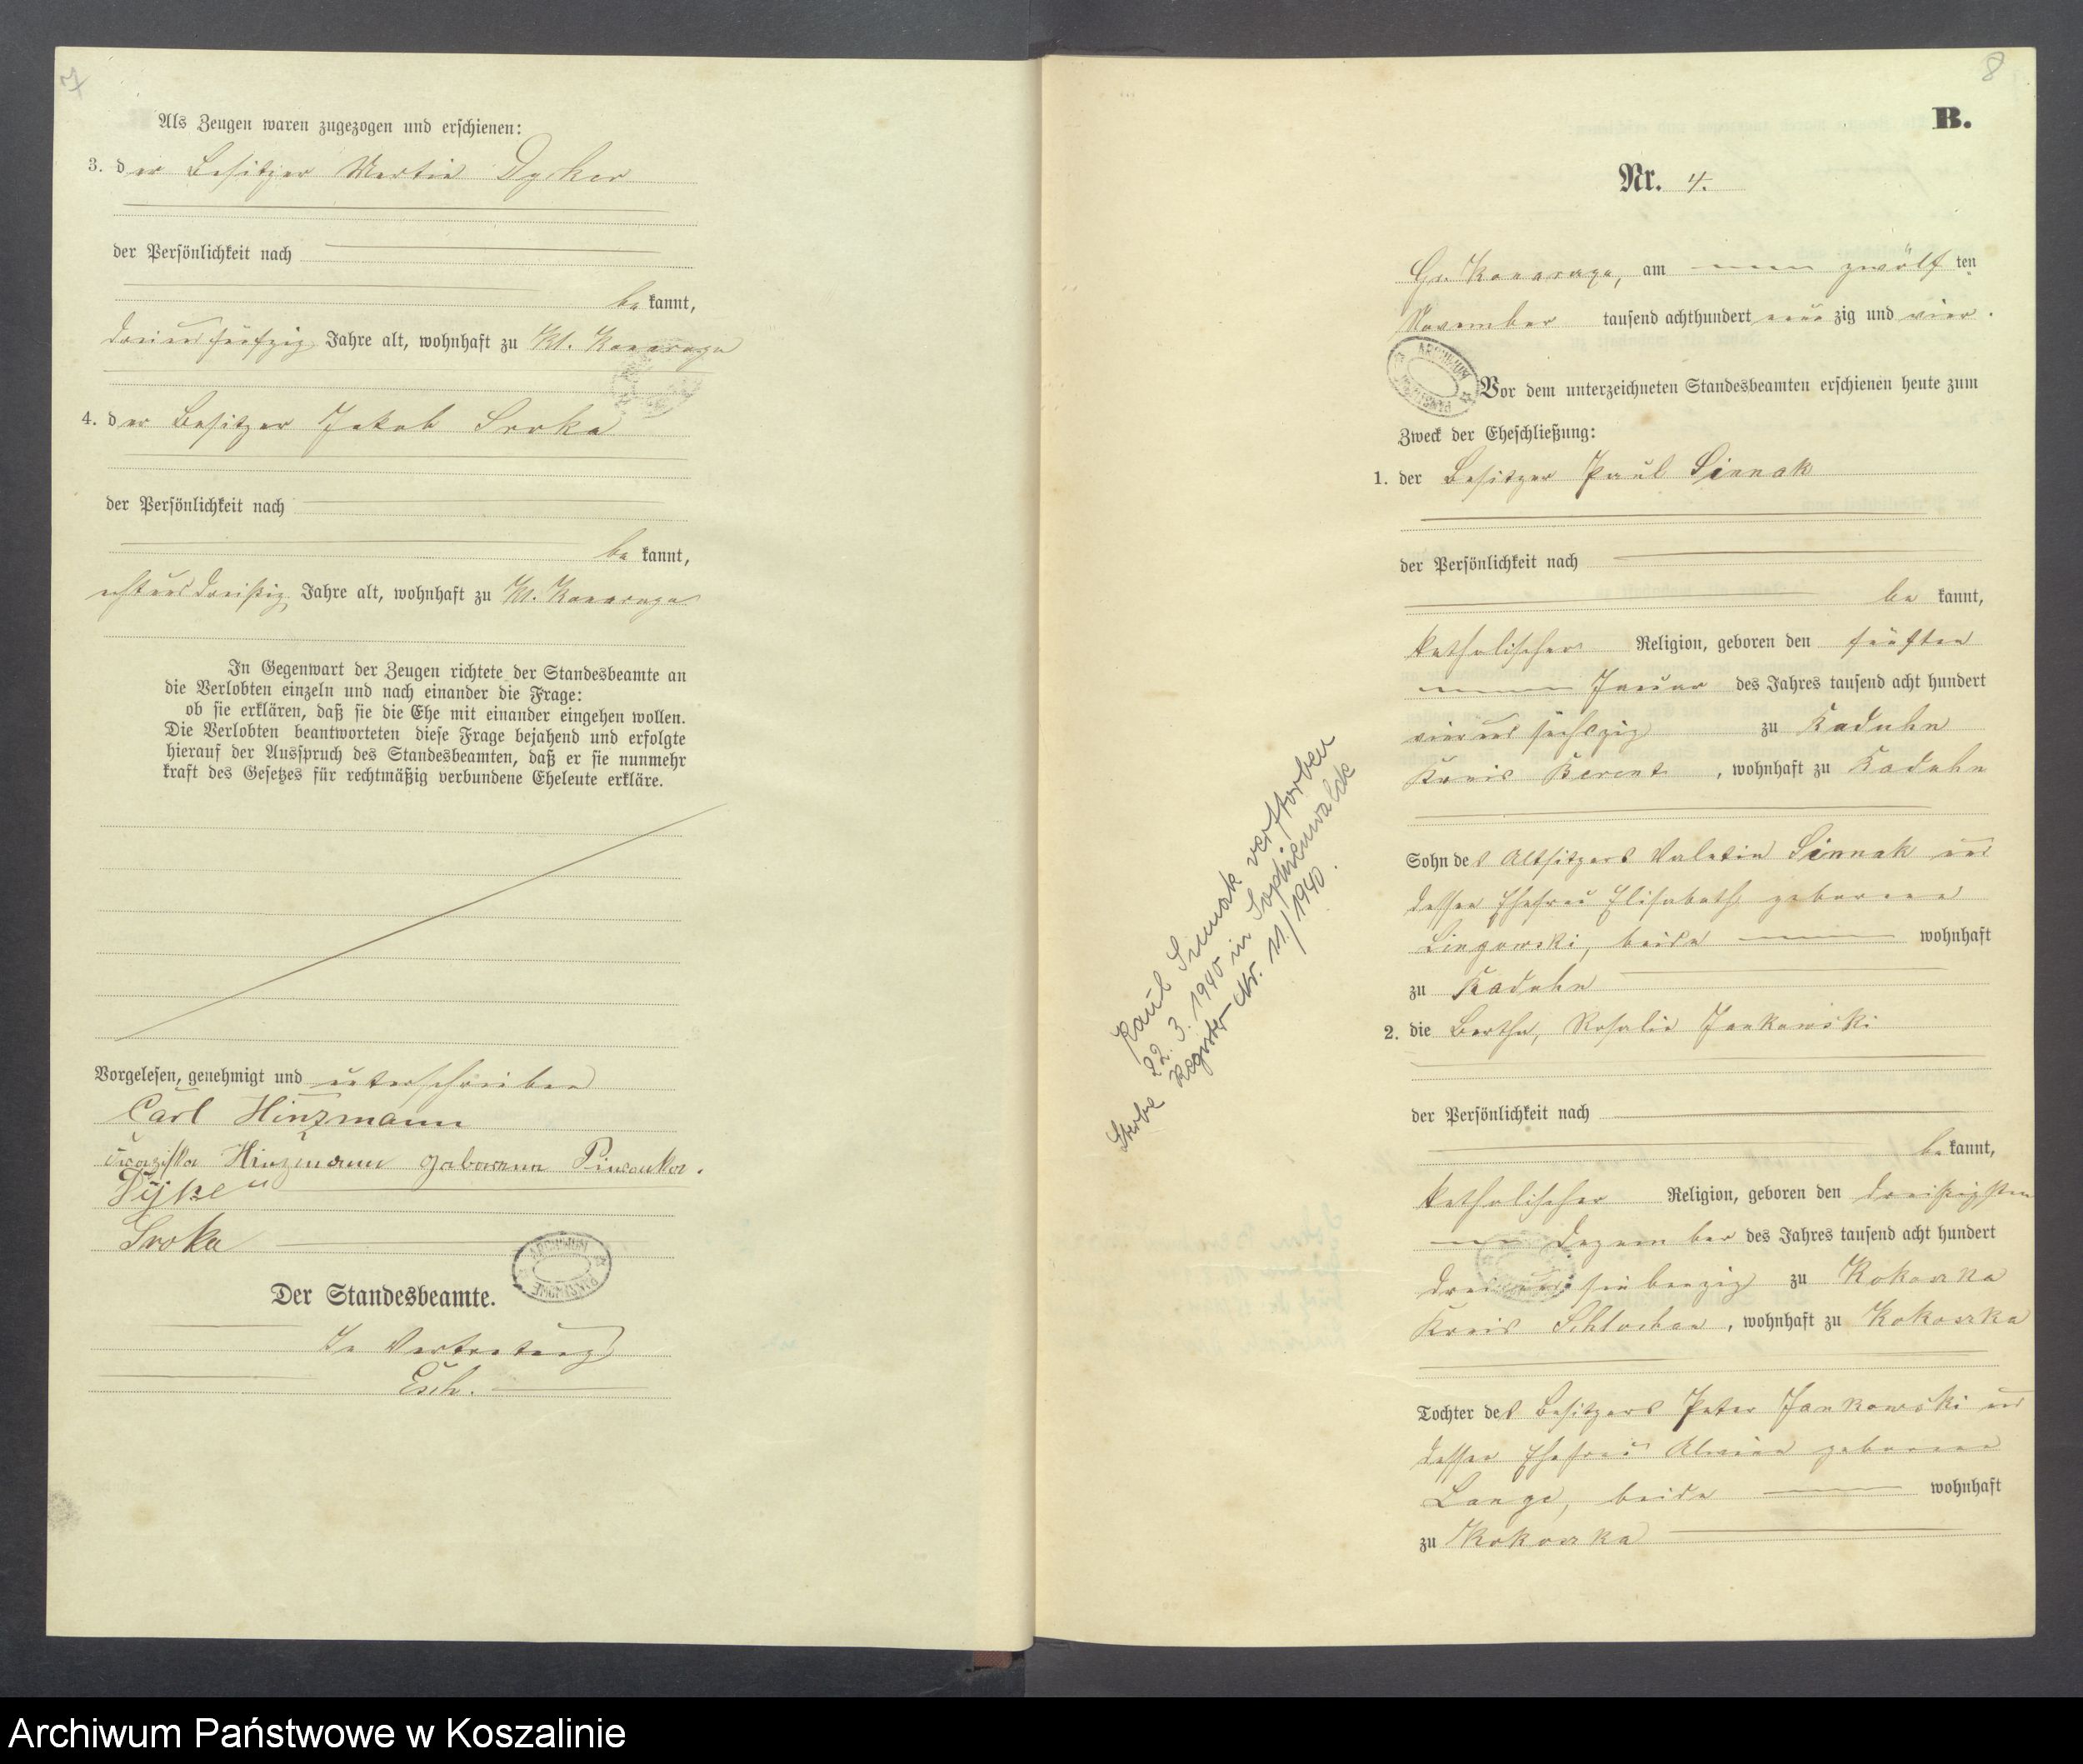 7
Als Zeugen waren zugezogen und erschienen:
3. der Besitzer Martin Dyker
der Persönlichkeit nach
bekannt,
dreiundfünfzig Jahre alt, wohnhaft zu Kl. Konarzyn
4. der Besitzer Jakob Sroka
der Persönlichkeit nach
bekannt,
achtunddreißig Jahre alt, wohnhaft zu Kl. Konarzyn
In Gegenwart der Zeugen richtete der Standesbeamte an
die Verlobten einzeln und nach einander die Frage:
ob sie erklären, daß sie die Ehe mit einander eingehen wollen.
Die Verlobten beantworteten diese Frage bejahend und erfolgte
hierauf der Ausspruch des Standesbeamten, daß er sie nunmehr
kraft des Gesetzes für rechtmäßig verbundene Eheleute erkläre.
Vorgelesen, genehmigt und unterschrieben
Carl Hinzmann
Franziska Hinzmann geborenne
Sroka
ARCHIWUM PAŃSTWOWE
Der Standesbeamte.
In Vertretung
Esch.
8
B.
Nr. 4.
Gr. am zwölften
November tausend achthundert neunzig und vier.
ARCHIWUM PAŃSTWOWE
Vor dem unterzeichneten Standesbeamten erschienen heute zum
Zweck der Eheschließung:
1. der Besitzer Paul Sinnak
der Persönlichkeit nach
bekannt,
katholischer Religion, geboren den fünften
Januar des Jahres tausend acht hundert
vierundsechszig zu Kaduhn
Kreis Berent, wohnhaft zu Kaduhn
Sohn des Altsitzers Valetin Sinnak und
dessen Ehefrau Elisabeth geborene
beide wohnhaft
zu Kaduhn
2. die Bertha, Rosalie Jankowski
der Persönlichkeit nach
bekannt,
katholischer Religion, geboren den dreißigsten
Dezember des Jahres tausend acht hundert
dreiundsiebenzig zu Kokoszka
Kreis Schlochau, wohnhaft zu Kokoszka
Tochter des Besitzers Peter Jankowski und
dessen Ehefrau Alwine geborene
Lange, beide wohnhaft
zu Kokoszka
Paul Sinnak verstorben
22. 3. 1940 in Sophienwalde
Sterbe Register Nr. 11/1940.
Archiwum Państwowe w Koszalinie